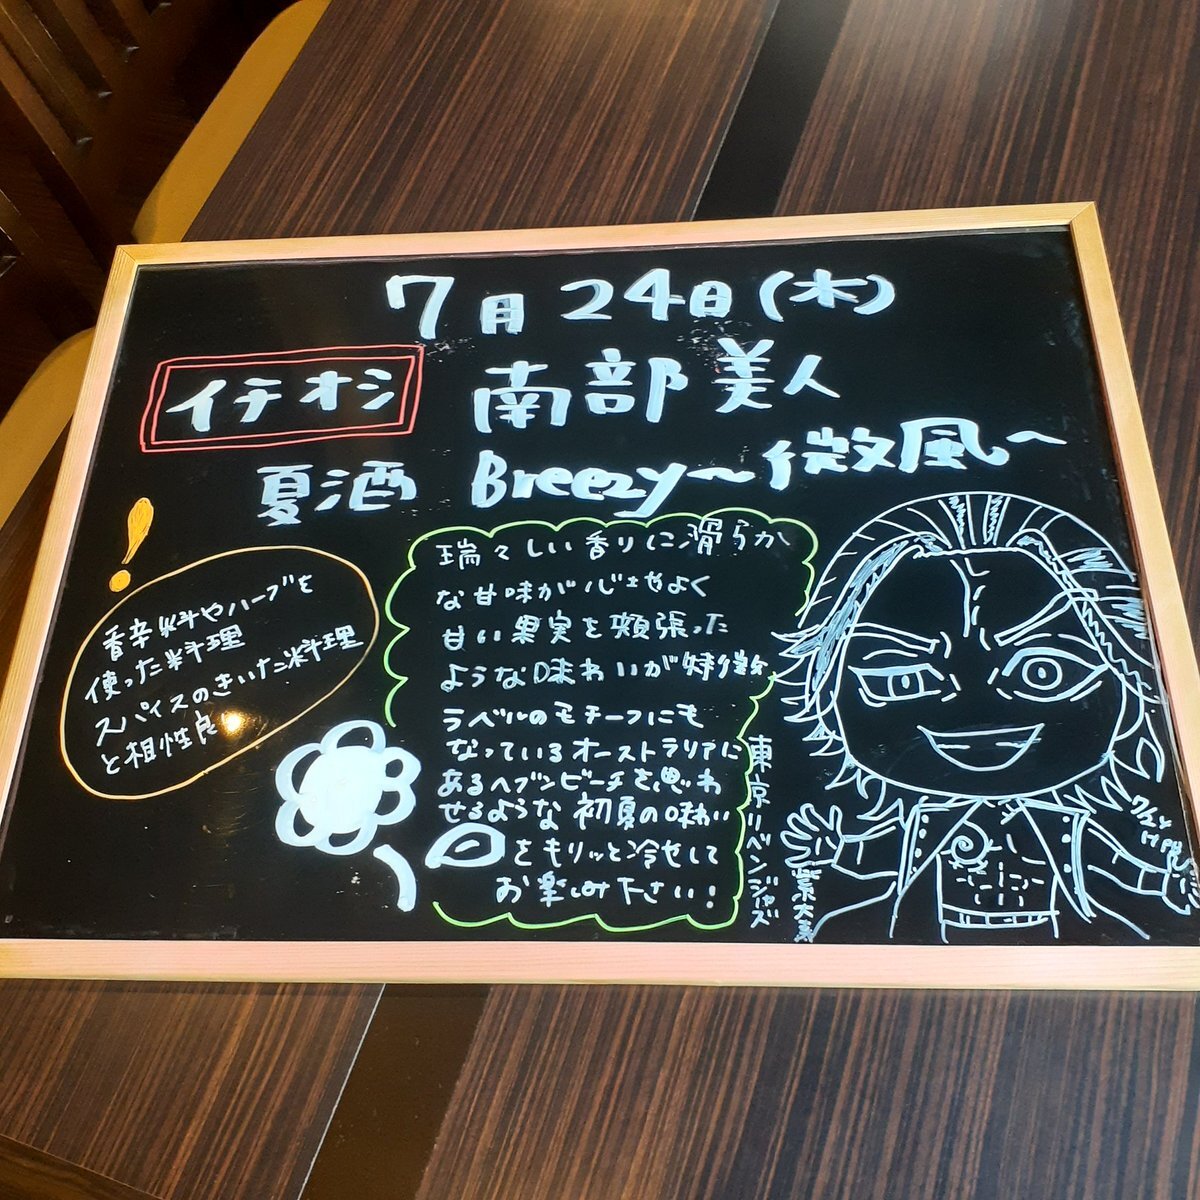 7月24日(木)
イチオシ
南部美人
夏酒 Breezy〜微風〜
香辛料やハーブを
使った料理
スパイスのきいた料理
と相性良
瑞々しい香りに滑らか
な甘味が心地よく
甘い果実を頬張った
ような味わいが特徴
ラベルのモチーフにも
なっているオーストラリアに
あるヘブンビーチを思わ
せるような初夏の味わい
をキリッと冷やして
お楽しみ下さい!
東京リベンジャーズ
7/24